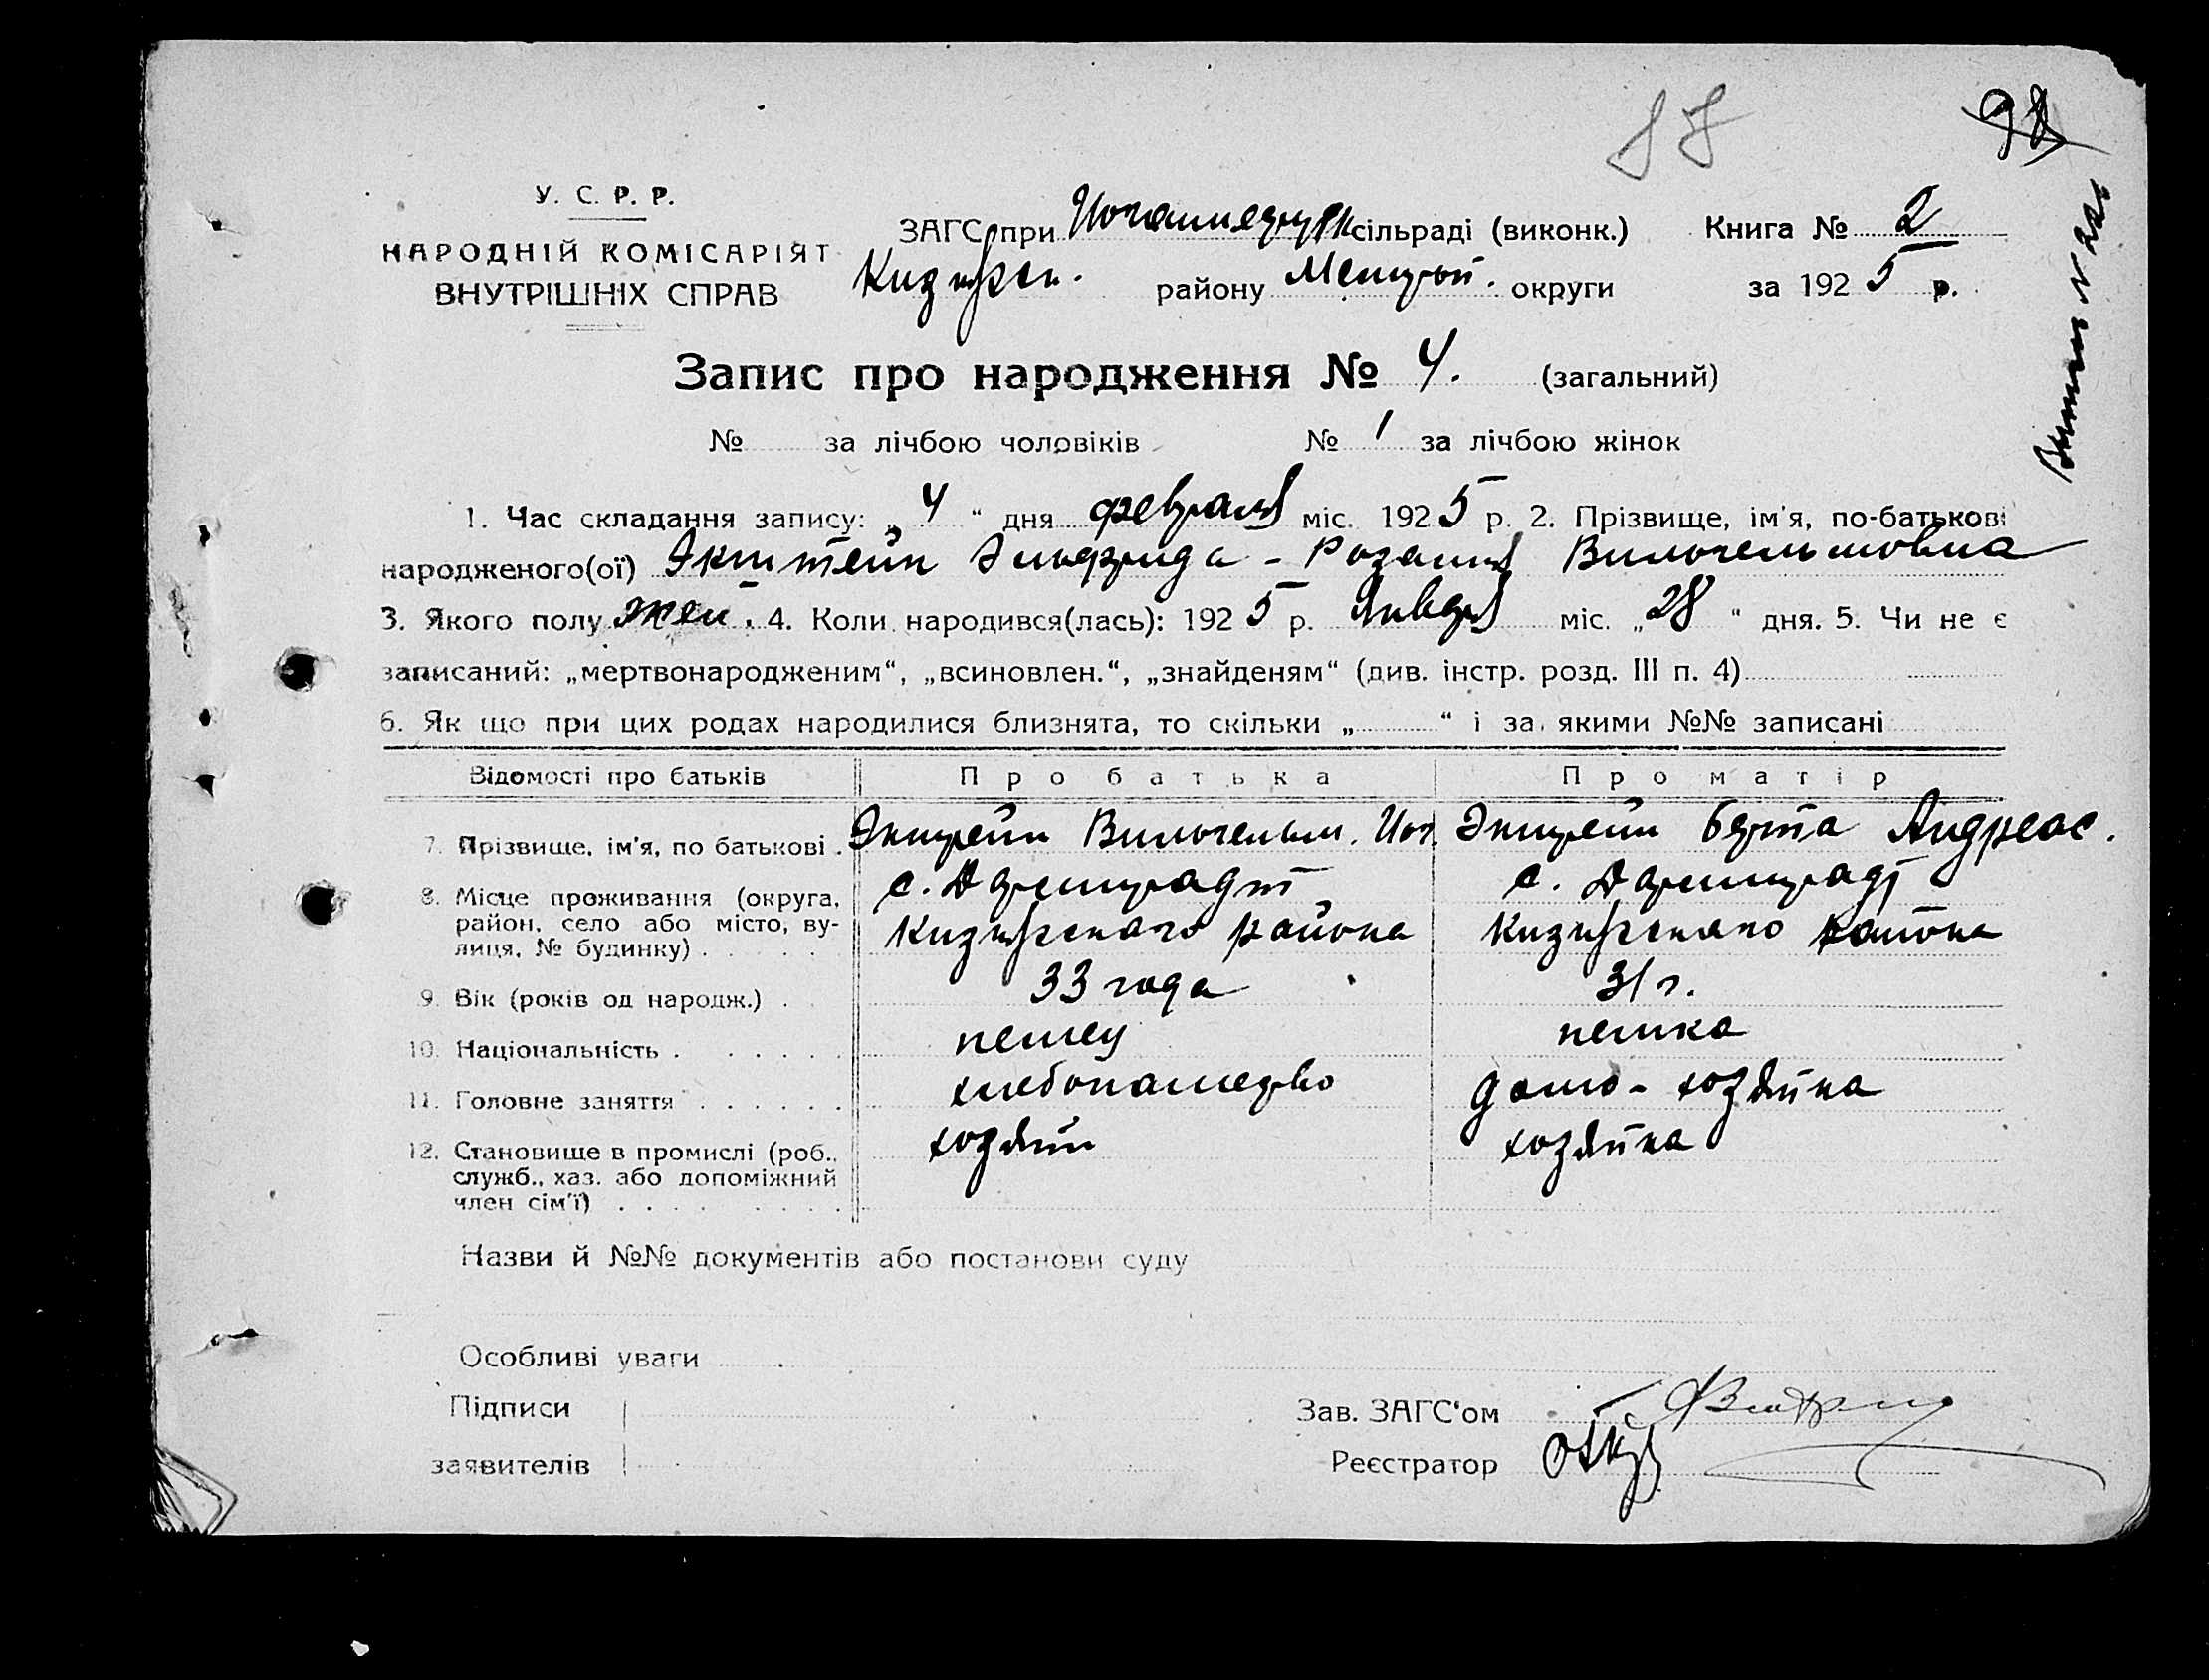 87
98
У. С. Р. Р.
НАРОДНІЙ КОМІСАРІЯТ
ВНУТРІШНІХ СПРАВ
ЗАГС при сільраді (виконк.)
району округи
Книга № 2
за 1925 р.
Запис про народження № 4. (загальний)
№ за лічбою чоловіків № 1 за лічбою жінок
1. Час складання запису: „4“ дня февраля міс. 1925 р. 2. Прізвище, ім'я, по-батькові
народженого(ої) Экштейн Эльфрида - Розалия Вильгельмовна
3. Якого полу жен. 4. Коли народився(лась): 1925 р. Января міс. „28“ дня. 5. Чи не є
записаний: „мертвонародженим“, „всиновлен.“, „знайденям“ (див. інстр. розд. III п. 4)
6. Як що при цих родах народилися близнята, то скільки „ “ і за якими №№ записані
Відомості про батьків Про батька Про матір
7. Прізвище, ім'я, по батькові . Экштейн Вильгельм. Иог. Экштейн Берта Андреас.
8. Місце проживання (округа, район, село або місто, вулиця, № будинку) . с. Дармштадт с. Дармштадт
района района
9. Вік (років од народж.) . 33 года 31 г.
10. Національність . немец немка
11. Головне заняття хлебопашество домо-хозяйка
12. Становище в промислі (роб., хозяин хозяйка
служб., хаз. або допоміжний
член сім'ї)
Назви й №№ документів або постанови суду
Особливі уваги
Підписи
заявителів
Зав. ЗАГС'ом
Реєстратор